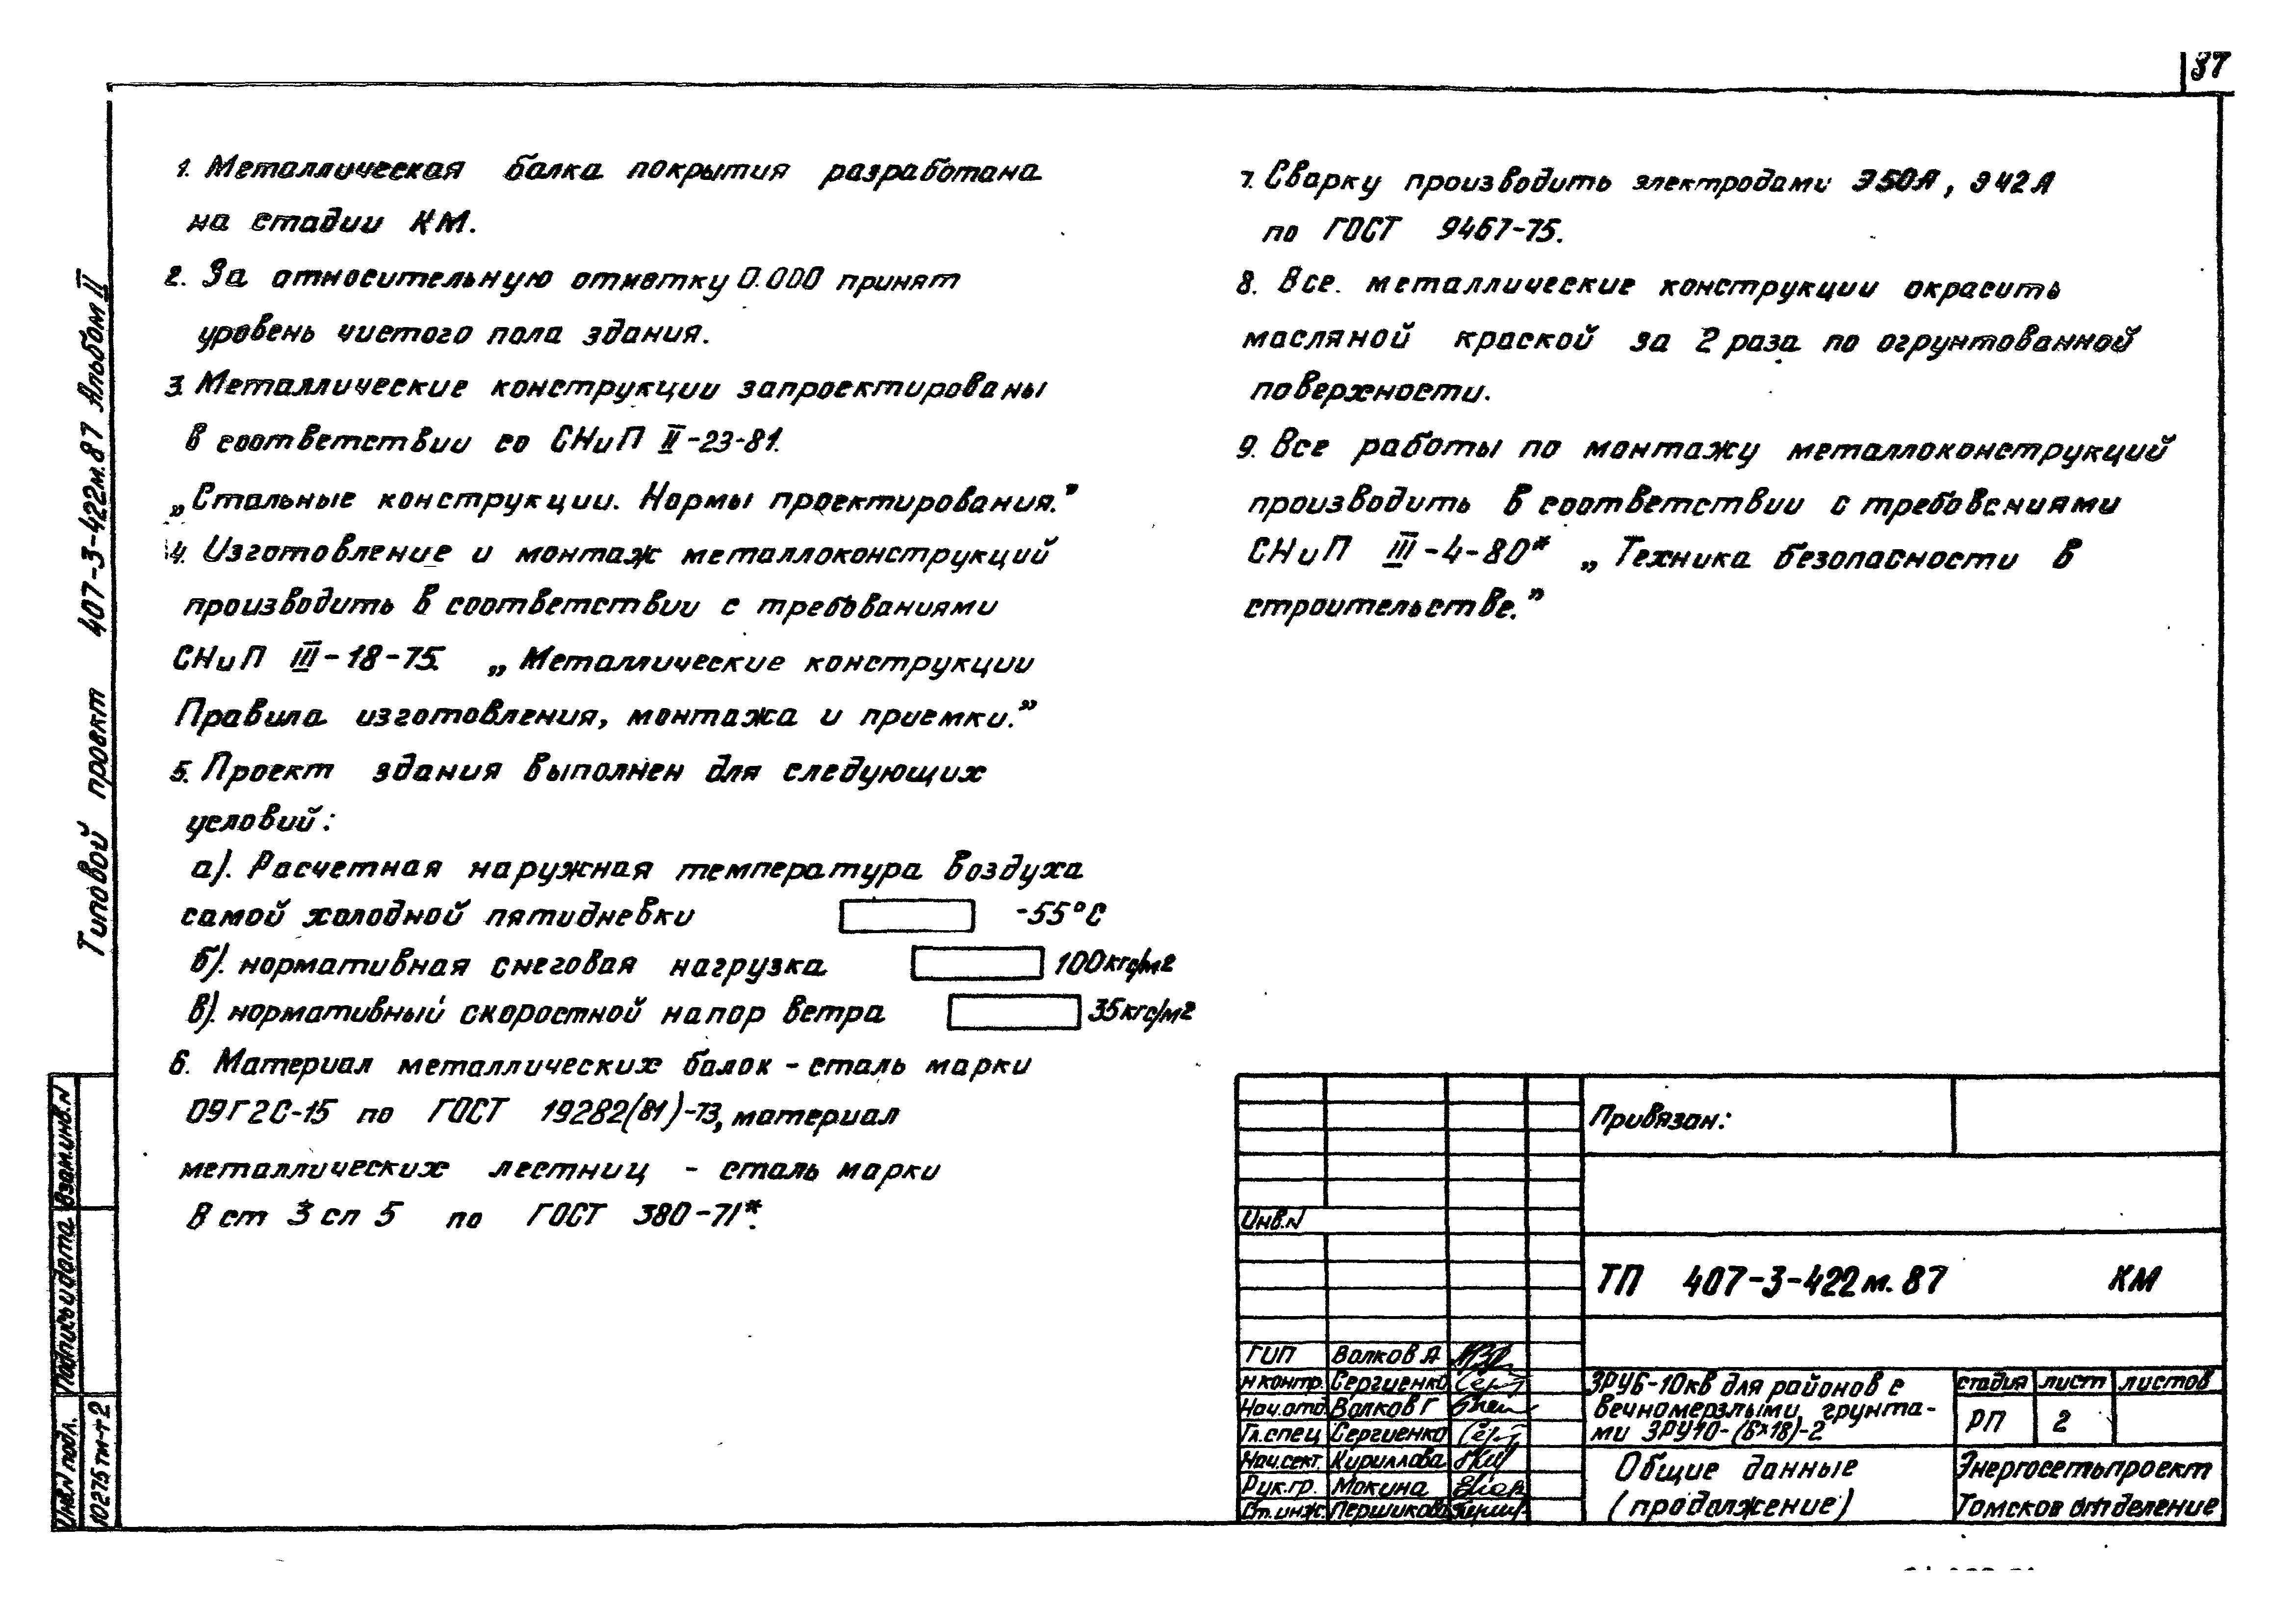 37
1. Металлическая балка покрытия разработана
на стадии КМ.
2. За относительную отметку 0.000 принят
уровень чистого пола здания.
3. Металлические конструкции запроектированы
в соответствии со СНиП II-23-81.
„Стальные конструкции. Нормы проектирования.”
4. Изготовление и монтаж металлоконструкций
производить в соответствии с требованиями
СНиП III-18-75. „Металлические конструкции
Правила изготовления, монтажа и приемки.”
5. Проект здания выполнен для следующих
условий:
а). Расчетная наружная температура воздуха
самой холодной пятидневки -55°С
б). нормативная снеговая нагрузка 100кгс/м2
в). нормативный скоростной напор ветра 35кгс/м2
6. Материал металлических балок - сталь марки
09Г2С-15 по ГОСТ 19282(81)-73, материал
металлических лестниц - сталь марки
В ст 3 сп 5 по ГОСТ 380-71*.
7. Сварку производить электродами Э50А, Э42А
по ГОСТ 9467-75.
8. Все. металлические конструкции окрасить
масляной краской за 2 раза по огрунтованной
поверхности.
9. Все работы по монтажу металлоконструкций
производить в соответствии с требовениями
СНиП III-4-80* „Техника безопасности в
строительстве.”
Типовой проект 407-3-422м.87 Альбом II
Взам.инв.N
Подпись и дата
Инв.N подл.
10275тм-т2
Привязан:
Инв.N
ТП 407-3-422м.87 КМ
ГИП Волков А
Н контр. Сергиенко
Нач.отд. Волков Г
Гл.спец Сергиенко
Нач.сект. Кириллова
Рук.гр. Мокина
Ст.инж. Першикова
ЗРУБ-10кВ для районов с
вечномерзлыми грунта-
ми ЗРУ10-(6×18)-2
стадия лист листов
РП 2
Общие данные
(продолжение)
Энергосетьпроект
Томсков отделение